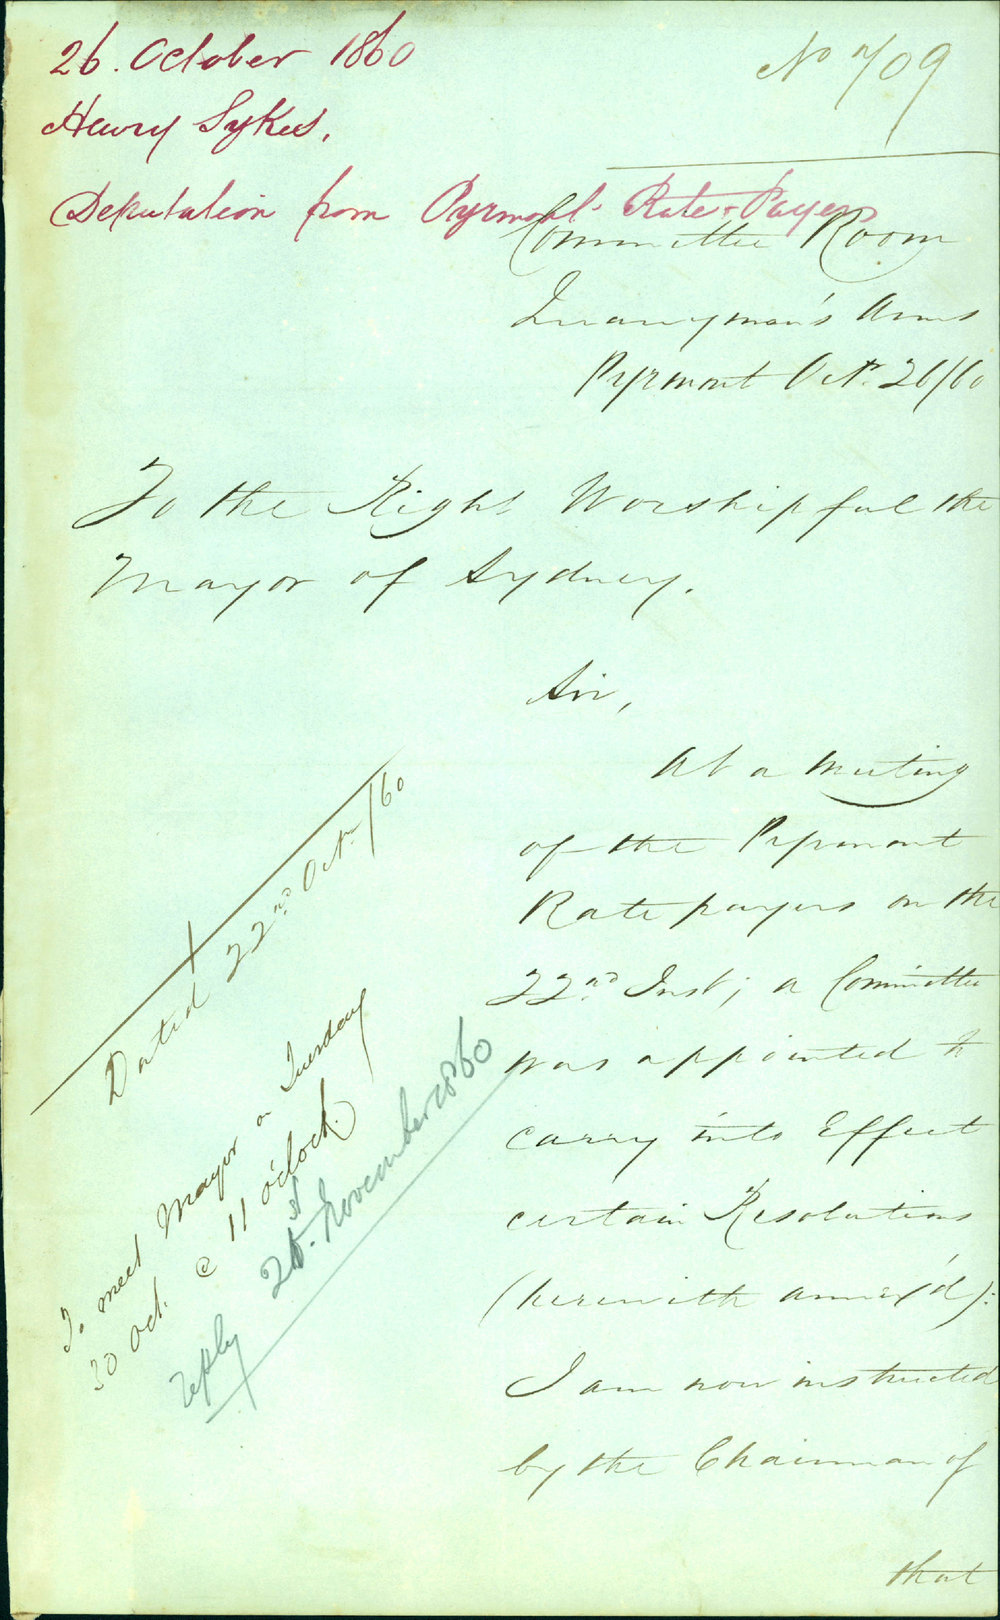 26. October 1860
No 709
Henry Sykes.
Deputation from Pyrmont Rate-Payers
Committee Room
Quarryman's Arms
Pyrmont Octr. 26/60
To the Right Worshipful the
Mayor of Sydney.
Sir,
At a Meeting
of the Pyrmont
Rate payers on the
22nd Inst; a Committee
was appointed to
carry into Effect
certain Resolutions
(herewith annex'd):
I am now instructed
by the Chairman of
that
Dated 22nd Octr/60
To meet Mayor on Tuesday
30 Oct. @ 11 o'clock.
reply November 1860